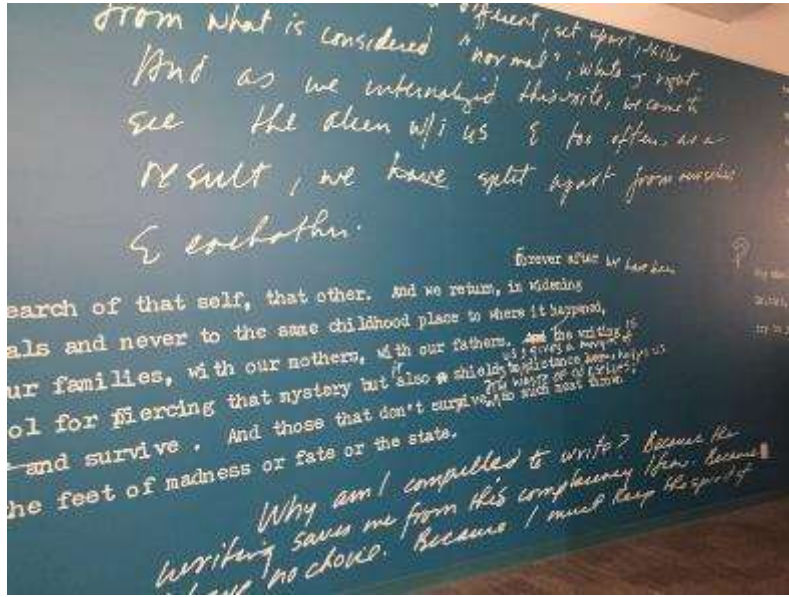 different, set apart,
from what is considered "normal", white & right.
And as we internalized this, we came to
see the alien w/i us & too often, as a
result, we have split apart from ourselves
& eachother.
forever after we have been
earch of that self, that other. And we return, in widening
als and never to the same childhood place to where it happened,
ur families, with our mothers, with our fathers. the writing is
ol for piercing that mystery but it also shields us, gives a margin of
distance helps us
and survive. And those that don't survive, the waste of ourselves:
so much meat thrown
he feet of madness or fate or the state.
Why am I compelled to write? Because the
writing saves me from this complacency I fear. Because
have no choice. Because I must keep the spirit of